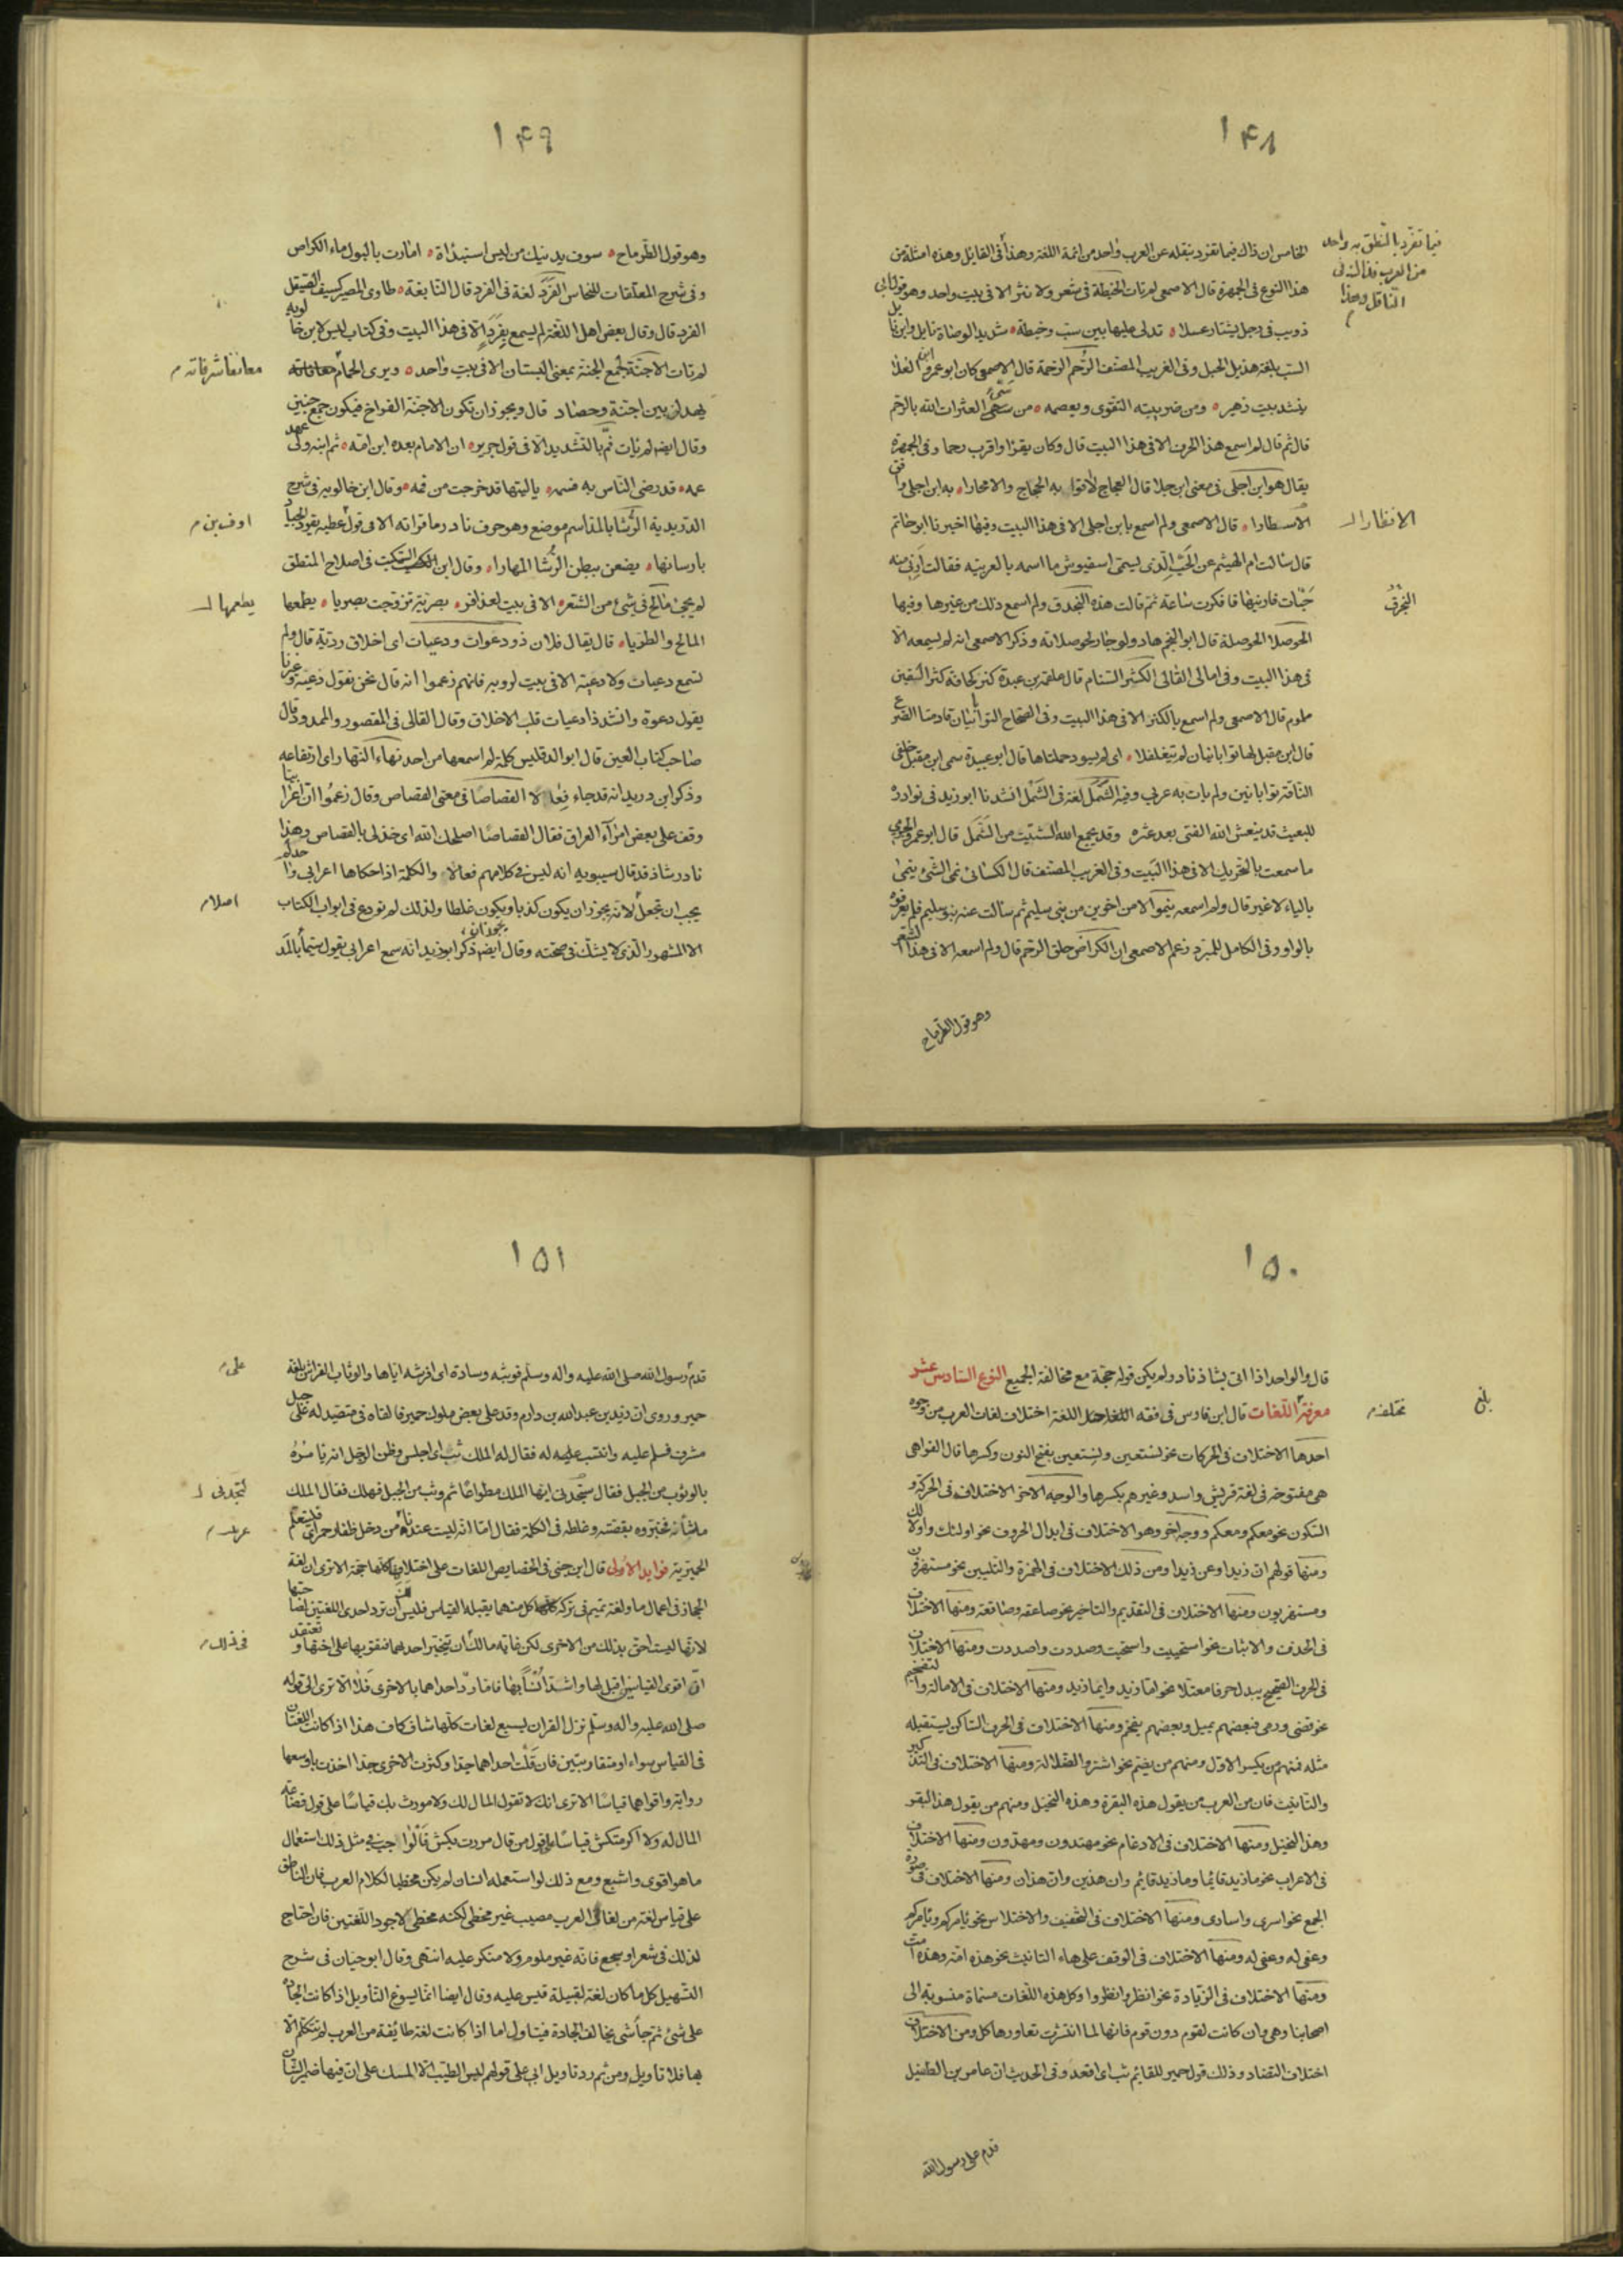 ١٤٨
فيما تفرد بالنطق به واحد
من العرب فذا النوع في
الناقل وهذا
الخامس ان ذاك فيما تفرد بنقله عن العرب واحد من ائمة اللغة وهذا في القايل وهذه امثلة من
هذا النوع في الجمهرة قال الاصمعي لم تات الخيطة في شعر ولا نثر الا في بيت واحد وهو قول ابي
ذويب في رجل يشتار عسلا تدلى عليها بين سب وخيطة شديد الوصاة نابل وابن نابل
السب بلغة هذيل الحبل وفي الغريب المصنف الرحم الرحمة قال الاصمعي كان ابو عمرو
ينشد بيت زهير ومن ضريبته التقوى ويعصمه من سيئ العثرات الله بالرحم
قال ثم قال لم اسمع هذا الحرف الا في هذا البيت قال وكان يقرا واقرب رحما وفي الجمهرة
يقال هو ابن اجلى في معنى ابن جلا قال العجاج لاقوا به الحجاج والاصحارا به ابن اجلى وافق
الاسفارا قال الاصمعي ولم اسمع بابن اجلى الا في هذا البيت وفيها اخبرنا ابو حاتم
قال سالت ام الهيثم عن الحب الذي يسمى اسفيوش ما اسمه بالعربية فقالت ارني منه
حبات فاريتها فافكرت ساعة ثم قالت هذه البخدق ولم اسمع ذلك من غيرها وفيها
الحوصلا الحوصلة قال ابو النجم هاد ولو جار لحوصلائه وذكر الاصمعي انه لم يسمعه الا
في هذا البيت وفي امالي القالي الكتر السنام قال علقمة بن عبدة كتر كحافة كتر القين
ملموم قال الاصمعي ولم اسمع بالكتر الا في هذا البيت وفي الصحاح التوابانيان قادمتا الضرع
قال ابن مقبل لها توابانيان لم يتفلفلا اي لم يسود حلمتاها قال ابو عبيدة سمى ابن مقبل خلفي
الناقة توابانيين ولم يات به عربي وفيه الشمل لغة في الشمل انشدنا ابو زيد في نوادره
للبعيث قد ينعش الله الفتى بعد عثرة وقد يجمع الله الشتيت من الشمل قال ابو عمرو الجرمي
ما سمعت بالتحريك الا في هذا البيت وفي الغريب المصنف قال الكسائي نمى الشئ ينمى
بالياء لا غير قال ولم اسمعه ينموا الا من اخوين من بني سليم ثم سالت عنه بنو سليم فلم يعرفوه
بالواو وفي الكامل للمبرد زعم الاصمعي ان الكراض حلق الرحم قال ولم اسمعه الا في هذا الشعر
وهو قول الطرماح
١٤٩
وهو قول الطرماح سوف يدنيك من لميس استبداة امارت بالبول ماء الكراض
وفي شرح المعلقات للنحاس الفرد لغة في الفرد قال النابغة طاوي المصير كسيف الصيقل
الفرد قال وقال بعض اهل اللغة لم يسمع بفرد الا في هذا البيت وفي كتاب ليس لابن خالويه
لم تات الاجنة لجمع الجنة بمعنى البستان الا في بيت واحد ويرى الحمام
يهدل بين اجنة وحصاد قال ويجوز ان تكون الاجنة الفراخ فيكون جمع جنين
وقال ايضا لم يات فم بالتشديد الا في قول جرير ان الامام بعده ابن امه ثم ابنه ولي عهد
عمه قد رضي الناس به فسمه ياليتها قد خرجت من فمه وقال ابن خالويه في شرح
الدريدية الرشا بالمقاسم موضع وهو حرف نادر ما قراته الا في قول عطية يقود الجياد
بارسانها يضعن ببطن الرشا المهارا وقال ابن السكيت في اصلاح المنطق
لم يجئ مالح في شئ من الشعر الا في بيت لعذافر بصرية تزوجت بصريا يطعمها
المالح والطريا قال يقال فلان ذو دعوات ودعيات اي اخلاق ردية قال ولم
تسمع دعيات ولا دعية الا في بيت لروبة فانهم زعموا انه قال نحن نقول دعية وغيرنا
يقول دعوة وانشد ذا دعيات قلب الاخلاق وقال القالي في المقصور والممدود قال
صاحب كتاب العين قال ابو الدقيس كلمة لم اسمعها من احد نهاء النهار اي ارتفاعه
وذكر ابن دريد انه قد جاء فعالاء القصاصا في معنى القصاص وقال زعموا ان اعرابيا
وقف على بعض امراء العراق فقال القصاصا اصلحك الله اي خذ لي بالقصاص وهذا
نادر شاذ قد قال سيبويه انه ليس في كلامهم فعالاء والكلمة اذا حكاها اعرابي واحد لم
يجب ان تجعل لانه يجوز ان يكون كذبا ويكون غلطا ولذلك لم تودع في ابواب الكتاب
الا المشهور الذي لا يشك في صحته وقال ايضا ذكر ابو زيد انه سمع اعرابي يقول سيما بالمد
اصلا
يطعمها
١٥٠
قال والواحد اذا اتى بشاذ نادر لم يكن قوله حجة مع مخالفة الجميع النوع السادس عشر
معرفة اللغات قال ابن فارس في فقه اللغة اختلاف لغات العرب من وجوه
احدها الاختلاف في الحركات نحو نستعين ونستعين بفتح النون وكسرها قال الفراهي
هي مفتوحة في لغة قريش واسد وغيرهم بكسرها والوجه الاخر الاختلاف في الحركة و
السكون نحو معكم ومعكم ووجه اخر وهو الاختلاف في ابدال الحروف نحو اولئك واولالك
ومنها قولهم ان زيدا وعن زيدا ومن ذلك الاختلاف في الهمزة والتليين نحو مستهزؤن
ومستهزيون ومنها الاختلاف في التقديم والتاخير نحو صاعقة وصاقعة ومنها الاختلاف
في الحذف والاثبات نحو استحييت واستحيت وصددت واصددت ومنها الاختلاف
في الحرف الصحيح يبدل حرفا معتلا نحو اما زيد وايما زيد ومنها الاختلاف في الامالة والتفخيم
نحو قضى ورمى فبعضهم يميل وبعضهم يفخم ومنها الاختلاف في الحرف الساكن يستقبله
مثله فمنهم من يكسر الاول ومنهم من يضم نحو اشتروا الضلالة ومنها الاختلاف في التذكير
والتانيث فان من العرب من يقول هذه البقرة وهذه النخيل ومنهم من يقول هذا البقر
وهذا النخيل ومنها الاختلاف في الادغام نحو مهتدون ومهدون ومنها الاختلاف
في الاعراب نحو ما زيد قائما وما زيد قائم وان هذين وان هذان ومنها الاختلاف في صورة
الجمع نحو اسرى واسارى ومنها الاختلاف في التخفيف والاختلاس نحو يامركم ويامركم
وعفي له وعفي له ومنها الاختلاف في الوقف على هاء التانيث نحو هذه امه وهذه امت
ومنها الاختلاف في الزيادة نحو انظر وانظروا وكل هذه اللغات مسماة منسوبة الى
اصحابنا وهي وان كانت لقوم دون قوم فانها لما انتشرت تعاورها كل ومن الاختلاف
اختلاف التضاد وذلك قول حمير للقائم ثب اي اقعد وفي الحديث ان عامر بن الطفيل
قدم على رسول الله
بلغ
١٥١
قدم رسول الله صلى الله عليه واله وسلم فوثبه وسادة اي افرشه اياها والوثاب الفراش بلغة
حمير وروي ان زيد بن عبد الله بن دارم وفد على بعض ملوك حمير فالفاه في متصيد له على جبل
مشرف فسلم عليه وانتسب له فقال له الملك ثب اي اجلس وظن الرجل انه يامره
بالوثوب من الجبل فقال ستجدني ايها الملك مطواعا ثم وثب من الجبل فهلك فقال الملك
ما شانه فخبروه بقصته وغلطه في الكلمة فقال اما انه ليست عندنا من دخل ظفار حمر اي فليتعلم
الحميرية فوايد الاولى قال ابن جني في الخصايص اللغات على اختلافها كلها حجة الا ترى ان لغة
الحجاز في اعمال ما ولغة تميم في تركه كل منهما يقبله القياس فليس لك ان ترد احدى اللغتين بصاحبتها
لانها ليست احق بذلك من الاخرى لكن غاية مالك ان تتخير احديهما فتقويها على اختها وتعتقد
ان اقوى القياسين اقبل لها واشد انسا بها فاما رد احداهما بالاخرى فلا الا ترى الى قوله
صلى الله عليه واله وسلم نزل القران بسبع لغات كلها شاف كاف هذا اذا كانت اللغتان
في القياس سواء او متقاربتين فان قلت احداهما جدا وكثرت الاخرى جدا اخذت باوسعها
رواية واقواهما قياسا الا ترى انك لا تقول المال لك ولا مررت بك قياسا على قول قضاعة
المال له ولا اكرمتكش قياسا على قول من قال مررت بكش فالواجب في مثل ذلك استعمال
ما هو اقوى واشيع ومع ذلك لو استعمله انسان لم يكن مخطيا لكلام العرب فان الناطق
على قياس لغة من لغات العرب مصيب غير مخطئ لكنه مخطئ لاجود اللغتين فان احتاج
لذلك في شعر او سجع فانه غير ملوم ولا منكر عليه انتهى وقال ابو حيان في شرح
التسهيل كل ما كان لغة لقبيلة قيس عليه وقال ايضا انما يسوغ التأويل اذا كانت الجادة
على شئ ثم جا شي يخالف الجادة فيتاول اما اذا كانت لغة طائفة من العرب لم تتكلم الا
بها فلا تاويل ومن ثم رد تاويل ابي علي قولهم ليس الطيب الا المسك على ان فيها ضمير الشان
على
في ذلك